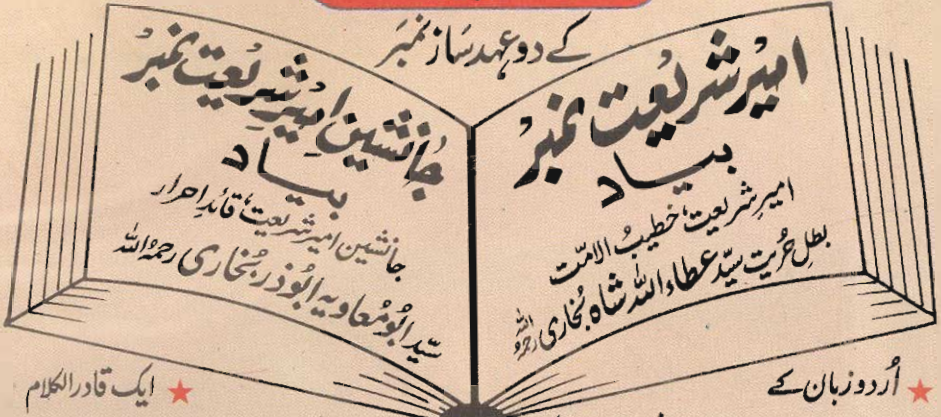 کے دو عہد ساز نمبر
امیرِ شریعت نمبر
بیاد
امیرِ شریعت، خطیبُ الامّت
بطلِ حُریت سیّد عطاء اللہ شاہ بُخاری رحمہُ اللہ
جانشینِ امیرِ شریعت نمبر
بیاد
جانشین امیرِ شریعت، قائدِ احرار
سیّد ابُو مُعاویہ ابُوذر بُخاری رحمہُ اللہ
★ اُردو زبان کے
★ ایک قادر الکلام